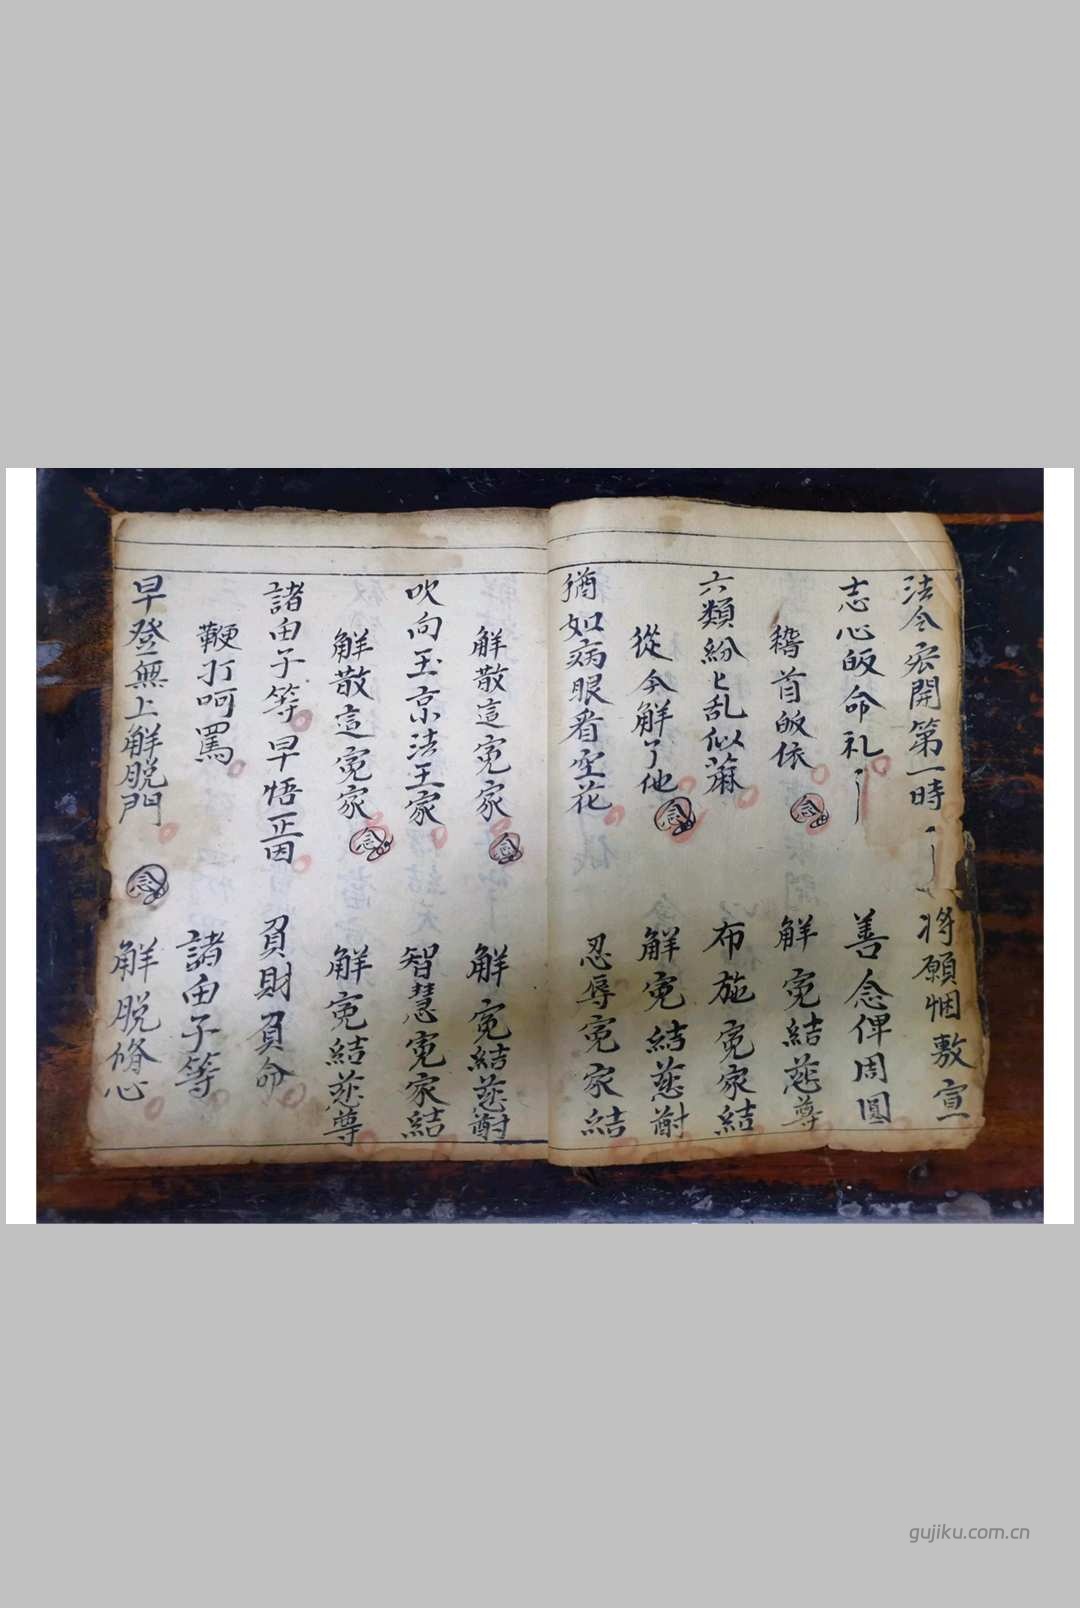 法令宏開第一時 将願悃敷宣
志心皈命礼 善念俾周圓
稽首皈依 念 解寃結慈尊
六類紛〻乱似蔴 布施寃家結
從今解了他 念 解寃結慈尊
猶如病眼看空花 忍辱寃家結
解散這寃家 念 解寃結慈尊
吹向玉京法王家 智慧寃家結
解散這寃家 念 解寃結慈尊
諸由子等 早悟正因 負財負命
鞭打呵罵 諸由子等
早登無上解脱門 念 解脱脩心
gujiku.com.cn